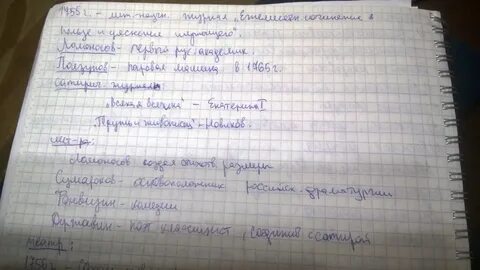 1755 г. - лит.-научн. журнал "Ежемесячн. сочинения к
пользе и увеселению служащего".
Ломоносов - первый рус. академик.
Ползунов - паровая машина в 1765 г.
сатирич. журналы
"Всякая всячина" - Екатерина II
"Трутень и живописец" - Новиков.
лит-ра:
Ломоносов создал стихотв. размеры
Сумароков - основоположник российск. драматургии
Фонвизин - комедии
Державин - поэт классицист, соединив с сатирой
театр: